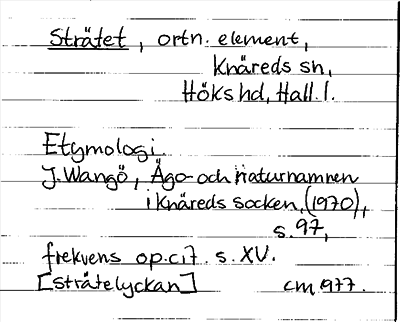 Strätet, ortn. element,
Knäreds sn,
Höks hd, Hall. l.
Etymologi.
J. Wangö, Ägo- och naturnamnen
i Knäreds socken, (1970),
s. 97,
frekvens op. cit. s. XV.
[Stråtelyckan] cm 1977.